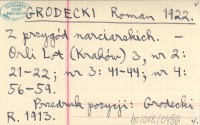 GRODECKI Roman 1922.
Z przygód narciarskich. -
Orli Lot (Kraków) 3, nr 2:
21-22; nr 3: 41-44; nr 4:
56-59.
Przedruk pozycji: Grodecki
R. 1913.